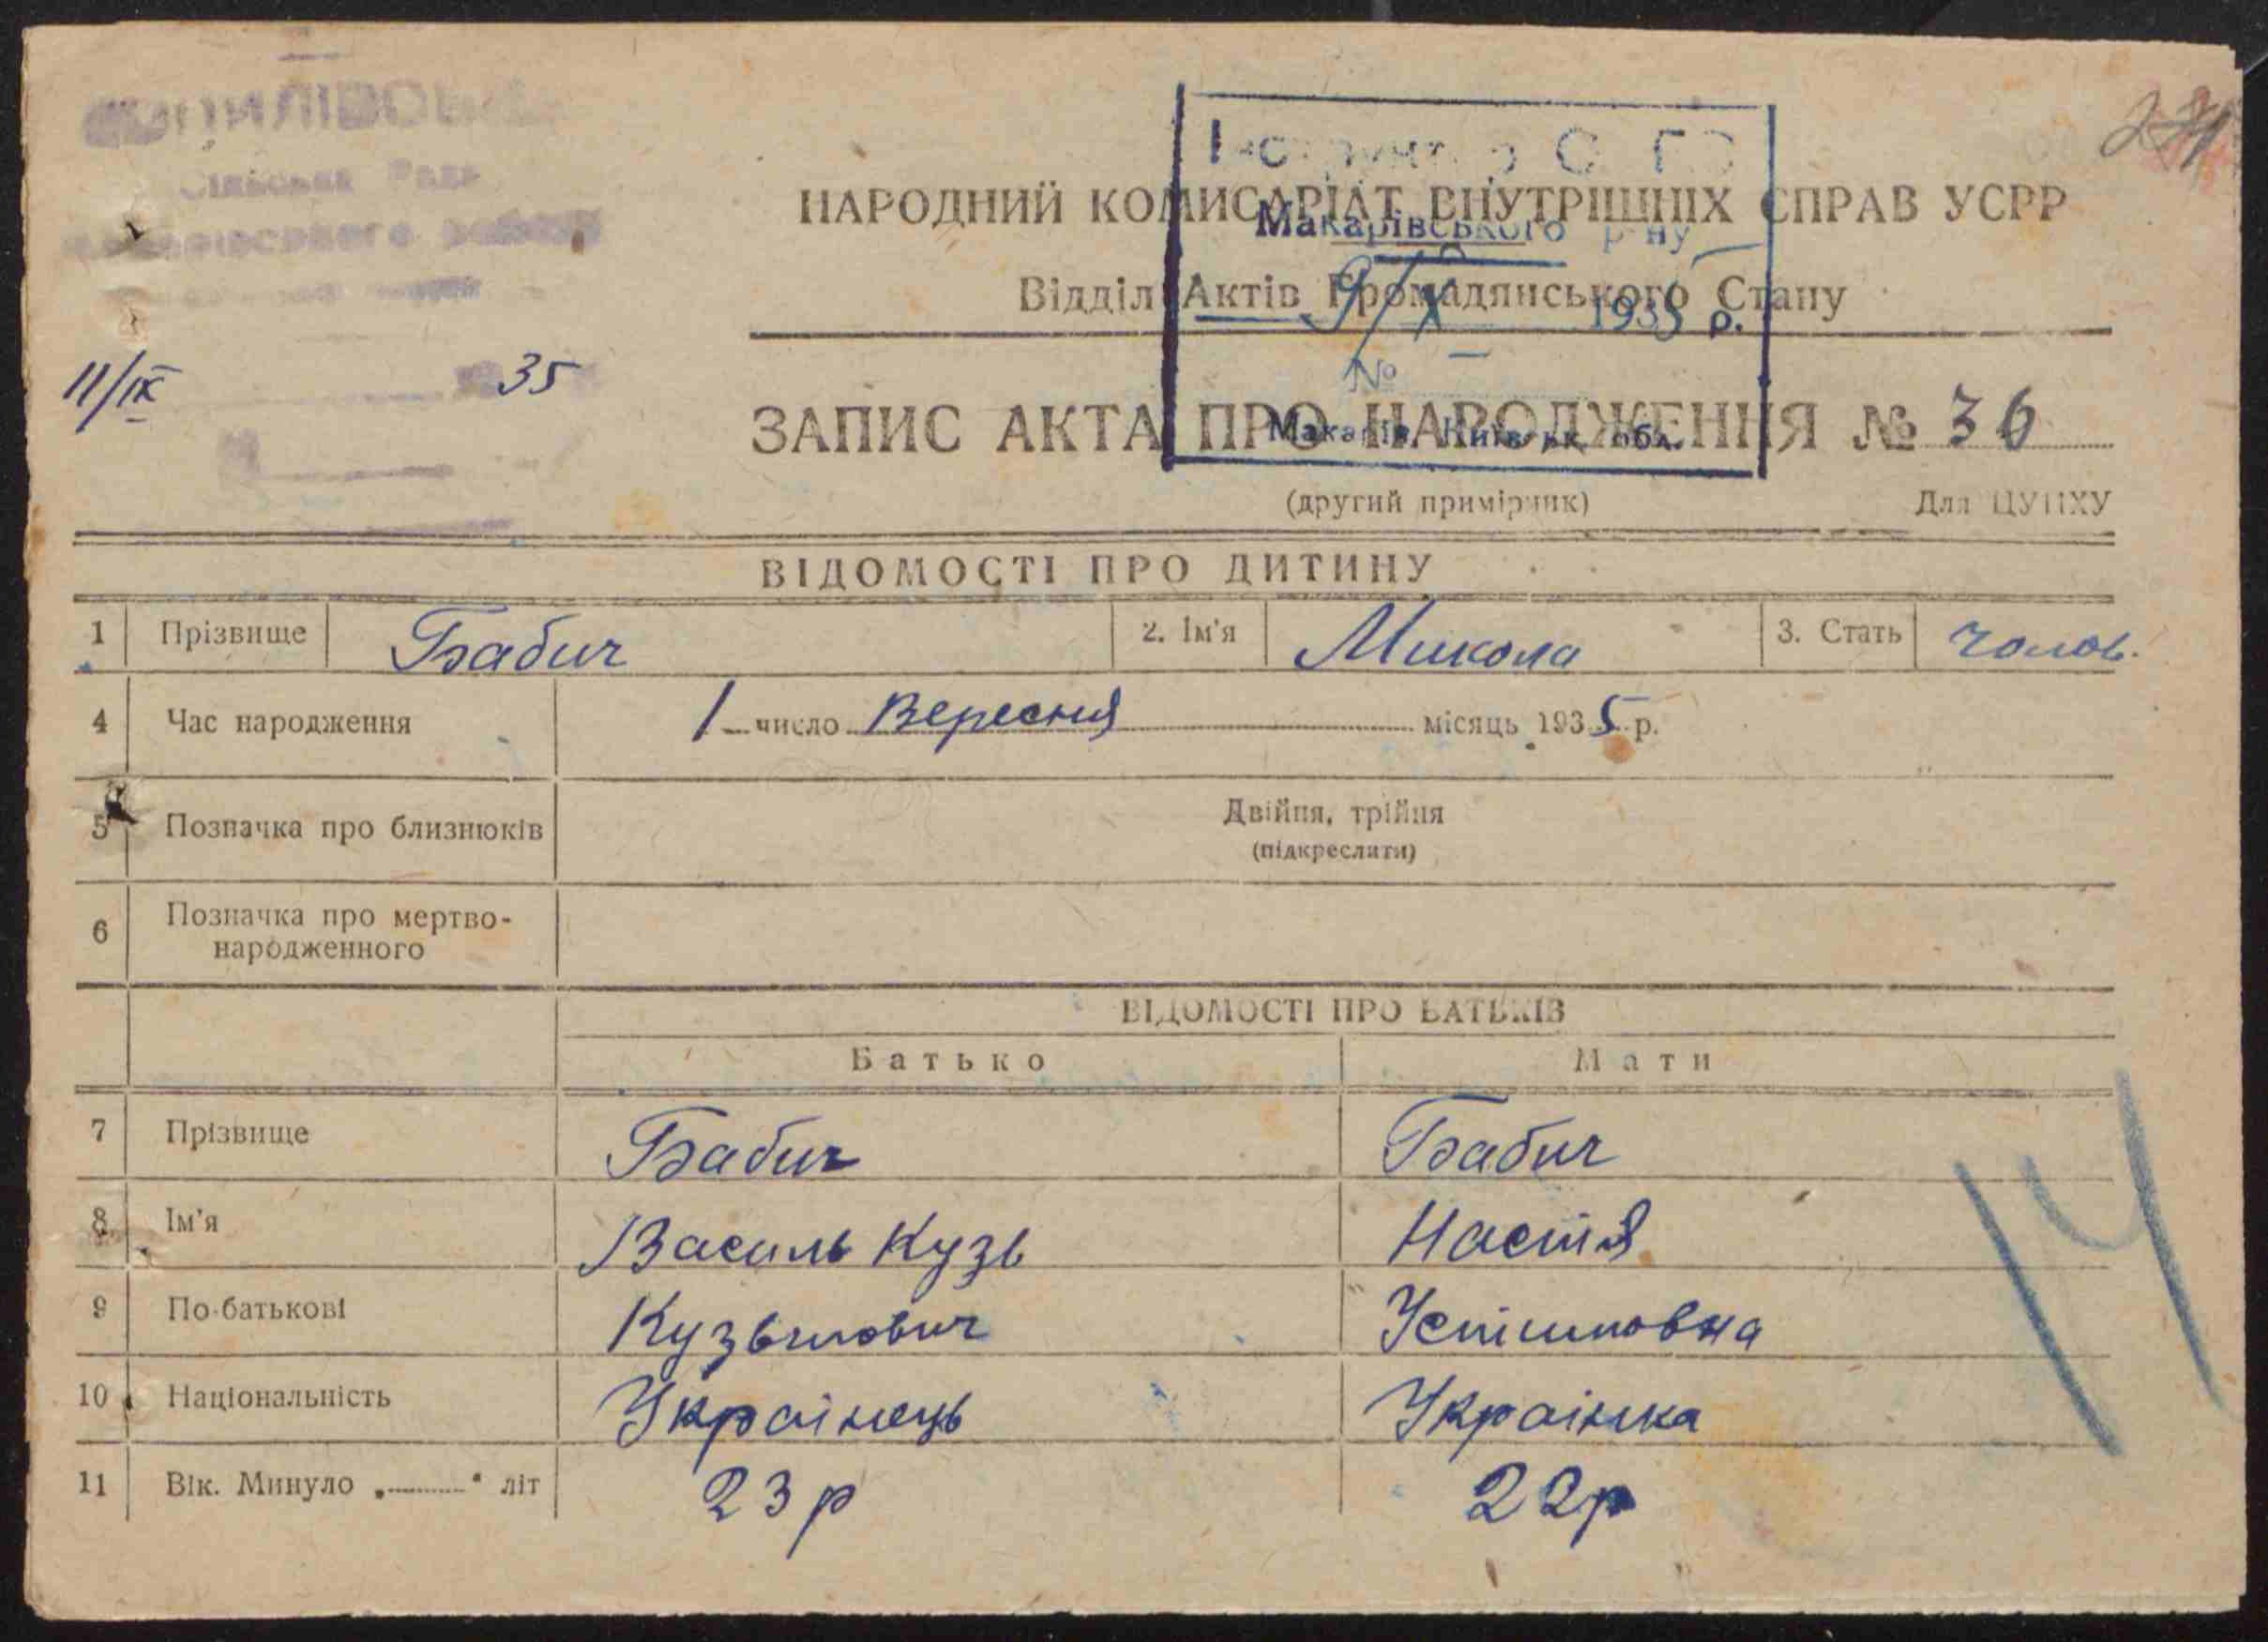 Сільська Рада
11/ІХ 35
Макарівського р-ну
9/X 1935 р.
№ —
Макарів, Київськ. обл.
НАРОДНИЙ КОМИСАРІАТ ВНУТРІШНІХ СПРАВ УСРР
Відділ Актів Громадянського Стану
ЗАПИС АКТА ПРО НАРОДЖЕННЯ № 36
(другий примірник) Для ЦУНХУ
ВІДОМОСТІ ПРО ДИТИНУ
1 Прізвище Бабич 2. Ім'я Микола 3. Стать чолов.
4 Час народження 1 число Вересня місяць 1935 р.
5 Позначка про близнюків Двійня, трійня
(підкреслити)
6 Позначка про мертво-
народженного
ВІДОМОСТІ ПРО БАТЬКІВ
Батько Мати
7 Прізвище Бабич Бабич
8 Ім'я Василь Кузь Настя
9 По-батькові Кузьмович Устимовна
10 Національність Українець Українка
11 Вік. Минуло „ “ літ 23 р 22 р
14